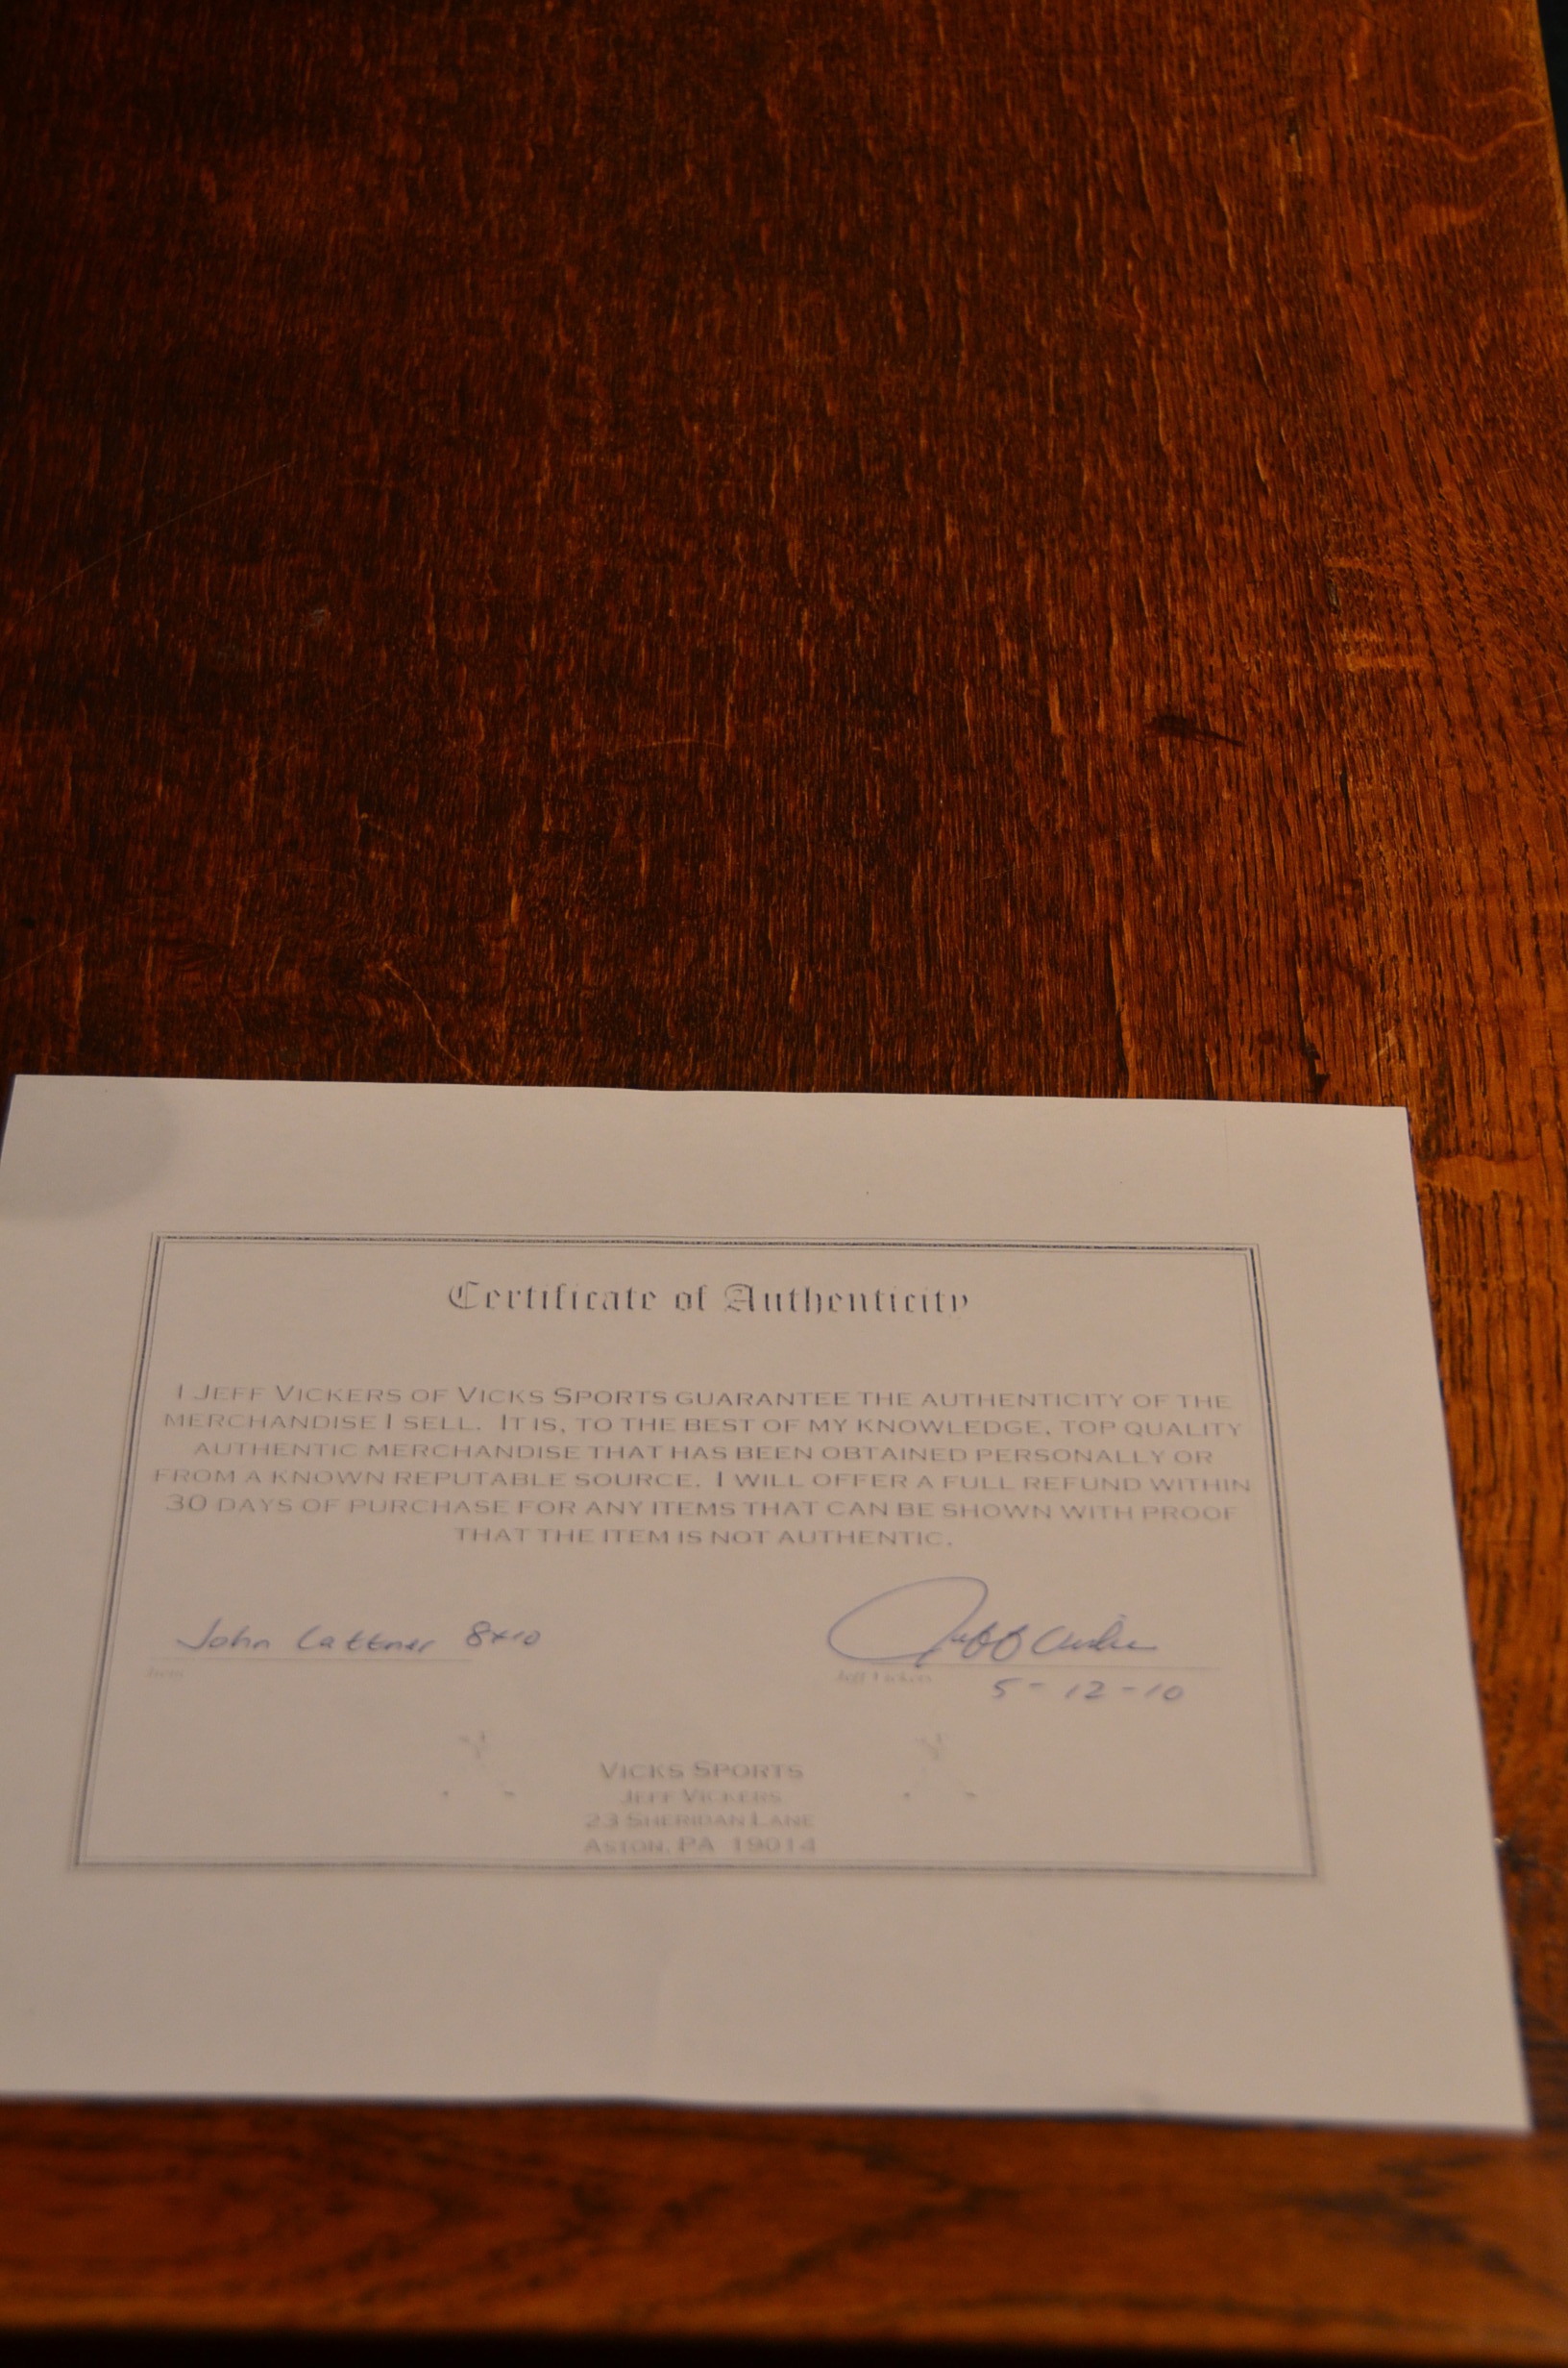 Certificate of Authenticity
I JEFF VICKERS OF VICKS SPORTS GUARANTEE THE AUTHENTICITY OF THE
MERCHANDISE I SELL. IT IS, TO THE BEST OF MY KNOWLEDGE, TOP QUALITY
AUTHENTIC MERCHANDISE THAT HAS BEEN OBTAINED PERSONALLY OR
FROM A KNOWN REPUTABLE SOURCE. I WILL OFFER A FULL REFUND WITHIN
30 DAYS OF PURCHASE FOR ANY ITEMS THAT CAN BE SHOWN WITH PROOF
THAT THE ITEM IS NOT AUTHENTIC.
John Lattner 8x10
Item
Jeff Vickers
5-12-10
VICKS SPORTS
JEFF VICKERS
23 SHERIDAN LANE
ASTON, PA 19014